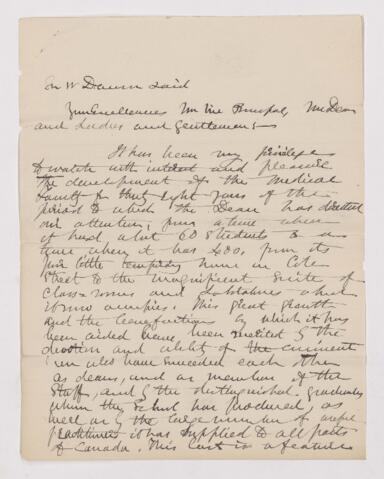 Sir W Dawson said
Your Excellencies Mr Vice Principal, Mr Dean
and Ladies and Gentlemen:
It has been my privilege
to watch with interest and pleasure
the development of the Medical
Faculty for thirty eight years of the
period to which the Dean has directed
our attention; from a time when
it had about 60 students to a
time when it has 400, from its
little home in Cote
Street to the magnificent suite of
class rooms and laboratories which
it now occupies. This great growth
and the benefactions by which it has
been aided have been merited by the
devotion and ability of the eminent
men who have succeeded each other
as deans, and as members of the
Staff, and by the distinguished graduates
whom the School has produced, as
well as by the large number of useful
practitioners it has supplied to all parts
of Canada. This last is a feature